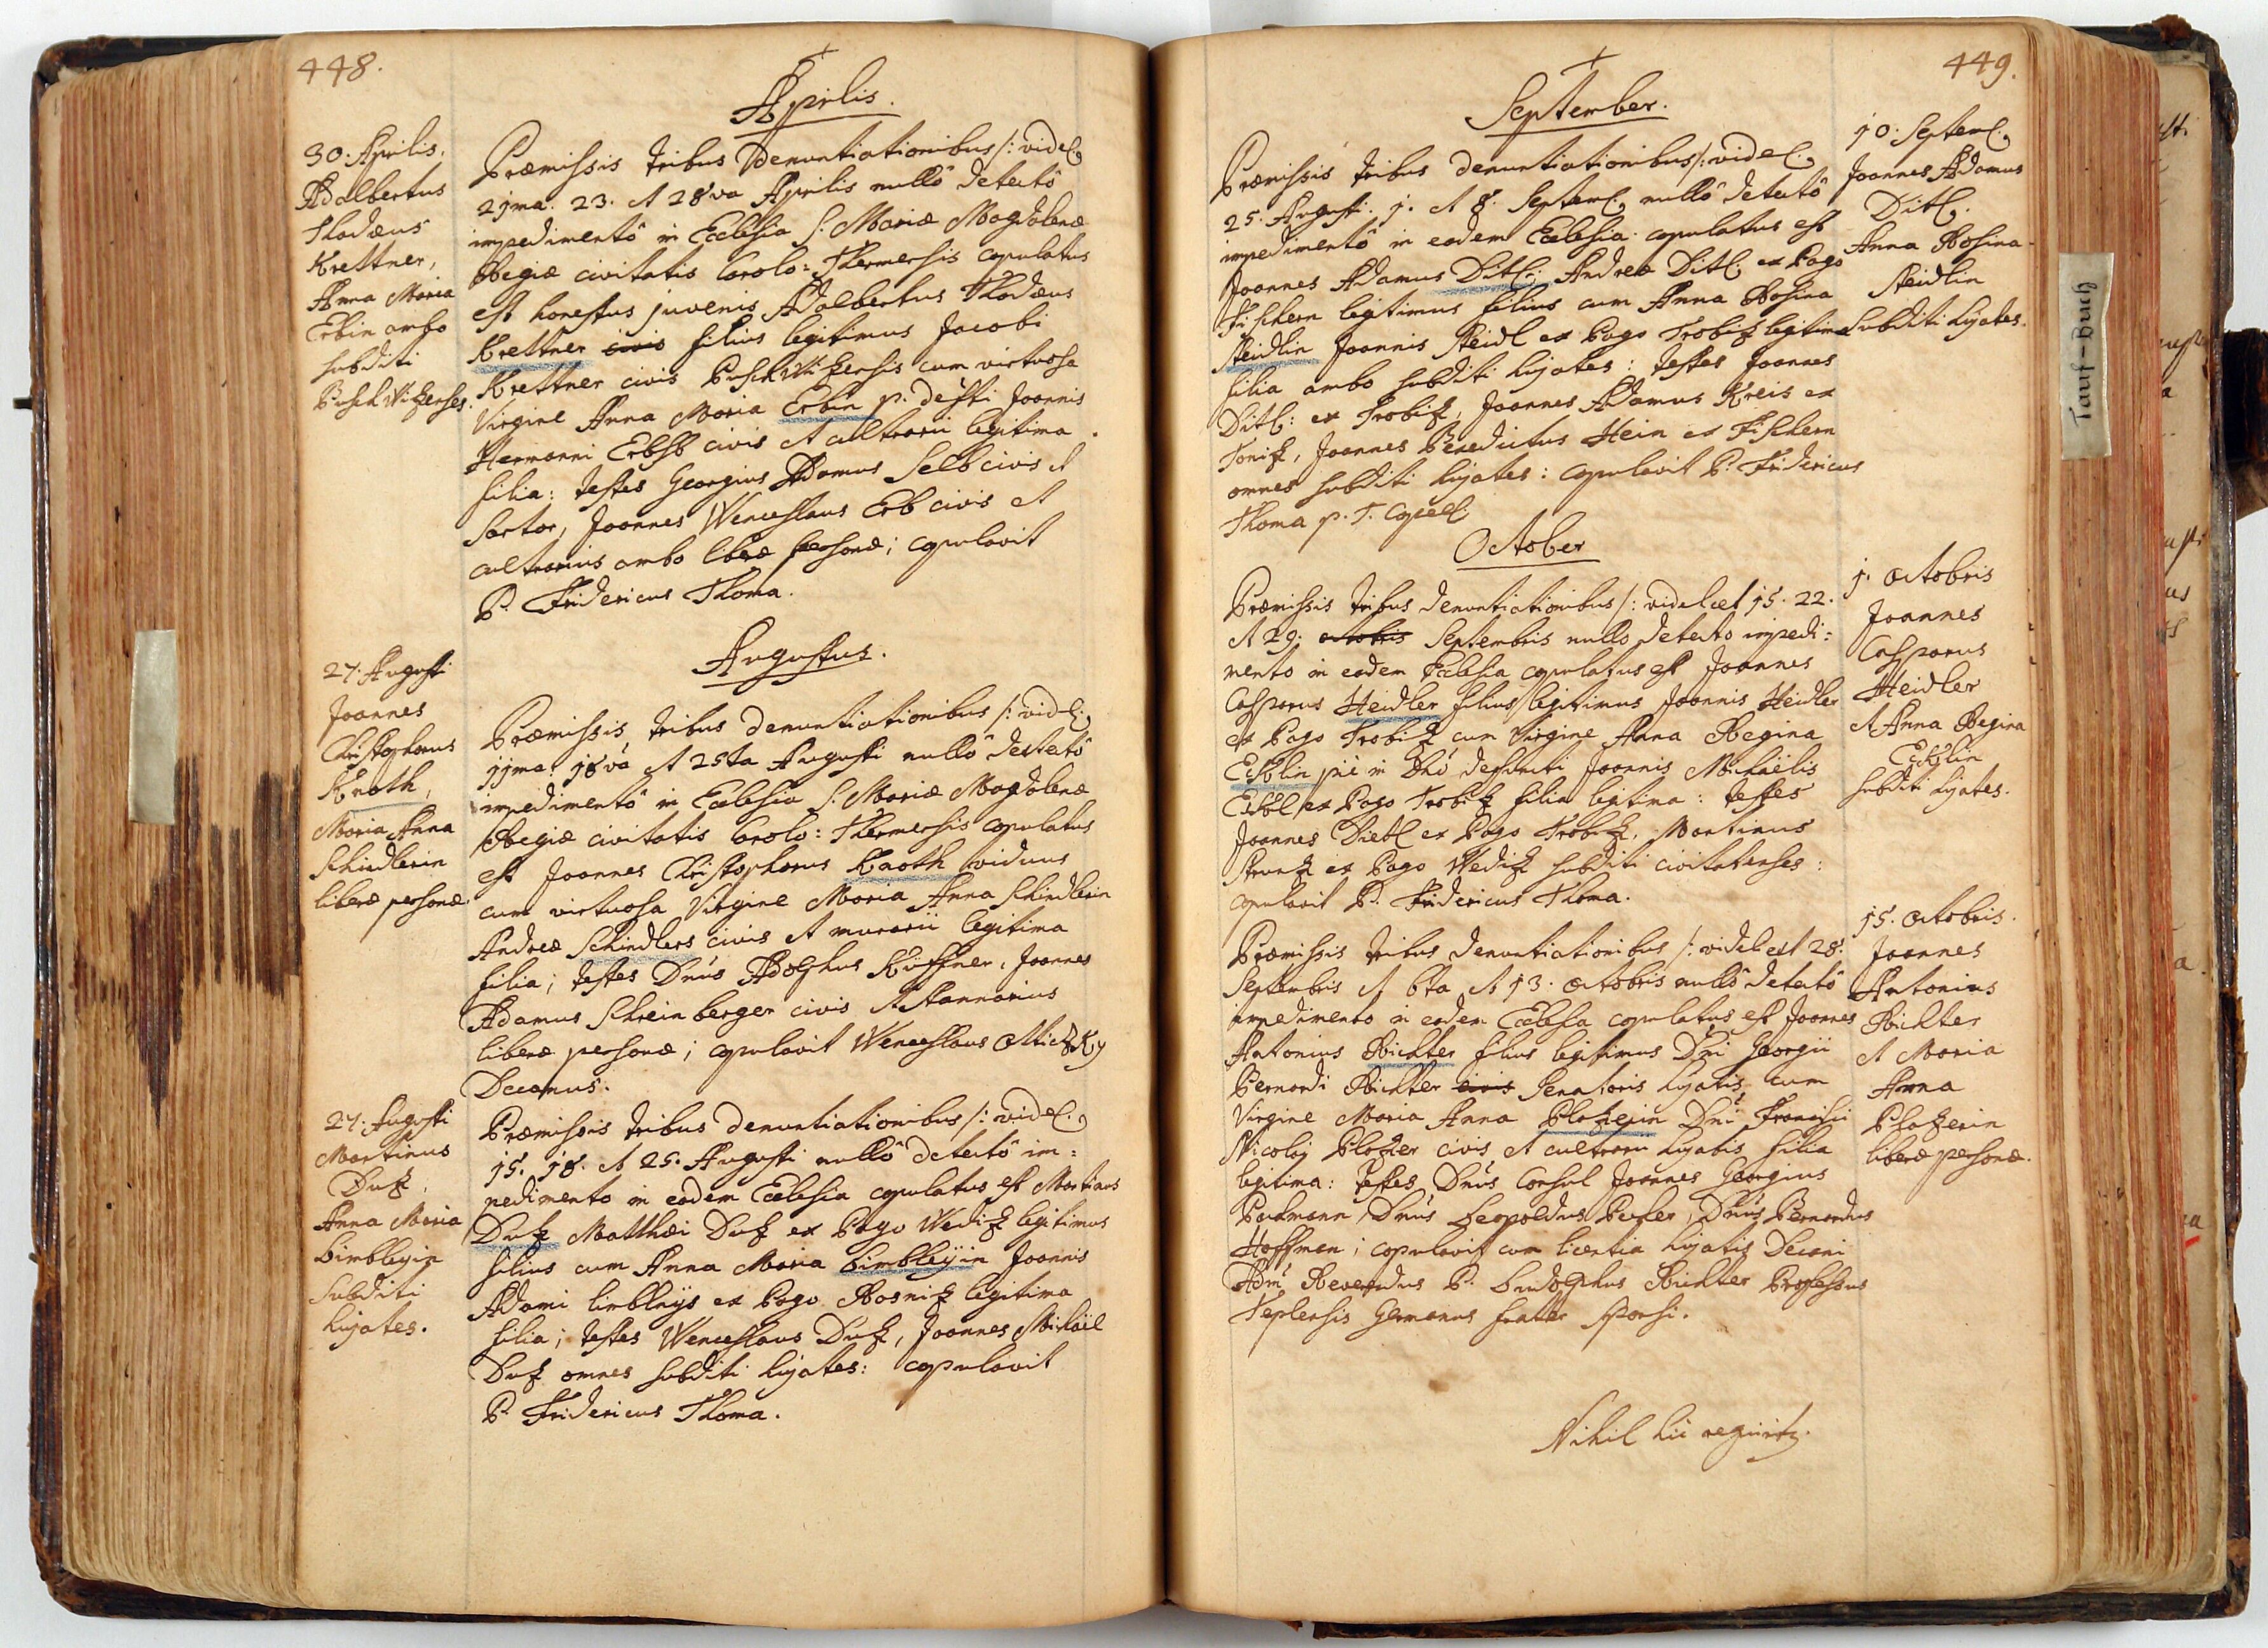 448.
Aprilis.
30. Aprilis.
Adalbertus
Thadæus
Krettner,
Anna Maria
Erbin ambo
subditi
Præmissis tribus denuntiationibus /: videl.
21ma. 23. et 28va Aprilis nullô detectô
impedimentô in Ecclesia S. Mariæ Magdalenæ
Regiæ civitatis Carolo=Thermensis copulatus
est honestus juvenis Adalbertus Thadæus
Krettner civis filius legitimus Jacobi
Krettner civis cum virtuosa
Virgine Anna Maria Erbin p. defti Joannis
Hermanni civis et cultrarii legitima
filia: testes Georgius Adamus Selb civis et
sartor, Joannes Wenceslaus Erb civis et
cultrarius ambo liberæ personæ; copulavit
P. Fridericus Thoma.
Augustus.
27. Augusti
Joannes
Christophorus
Knoth,
Maria Anna
Schindlerin
liberæ personæ.
Præmissis tribus denuntiationibus /: videl:
11ma. 18va et 25ta Augusti nullô detectô
impedimentô in Ecclesia S. Mariæ Magdalenæ
Regiæ civitatis Carolo=Thermensis copulatus
est Joannes Christophorus Knoth viduus
cum virtuosa Virgine Maria Anna Schindlerin
Andreæ Schindlers civis et murarii legitima
filia; testes Dnus Adolphus Küffner, Joannes
Adamus Schreinberger civis et stannarius
liberæ personæ; copulavit Wenceslaus
Decanus.
27. Augusti
Martinus
Dutz,
Anna Maria
Limbleyin
Subditi
hujates.
Præmissis tribus denuntiationibus /: videl.
15. 18. et 25. Augusti nullô detectô im=
pedimento in eadem Ecclesia copulatus est Martinus
Dutz Matthæi Dutz ex Pago Weditz legitimus
filius cum Anna Maria Limbleyin Joannis
Adami ex Pago Rosnitz legitima
filia; testes Wenceslaus Dutz, Joannes Michäel
Dutz omnes subditi hujates: copulavit
P. Fridericus Thoma.
449.
September.
10. Septem.
Joannes Adamus
Ditl.
Anna Rosina
Steidlin
Subditi hujates.
Præmissis tribus denuntiationibus /: videl.
25. Augusti. 1. et 8. Septem. nullô detectô
impedimentô in eadem Ecclesia copulatus est
Joannes Adamus Ditl: Andreæ Ditl ex Pago
Fischern legitimus filius cum Anna Rosina
Steidlin Joannis Steidl ex Pago Trobitz legitima
filia ambo subditi hujates: testes Joannes
Ditl: ex Trobitz, Joannes Adamus Kreis ex
Tonitz, Joannes Benedictus Hein ex Fischern
omnes subditi hujates: copulavit P. Fridericus
Thoma p. T. Capell:
October
1. Octobris
Joannes
Casparus
Heidler
et Anna Regina
subditi hujates.
Præmissis tribus denuntiationibus /: videlicet 15. 22.
et 29. octobris Septembris nullo detecto impedi=
mento in eadem Ecclesia copulatus est Joannes
Casparus Heidler filius legitimus Joannis Heidler
ex Pago Trobitz cum Virgine Anna Regina
piè in Dnô defuncti Joannis Michäelis
ex Pago Trobitz filia legitima: testes
Joannes Dietl ex Pago Trobitz, Martinus
ex Pago Weditz subditi civitatenses:
copulavit P. Fridericus Thoma.
15. Octobris.
Joannes
Antonius
Richter
et Maria
Anna
Platzerin
liberæ personæ.
Præmissis tribus denuntiationibus /: videlicet 28.
Septembris et 6ta et 13. Octobris nullô detectô
impedimento in eadem Ecclesia copulatus est Joannes
Antonius Richter filius legitimus Dni Georgii
Bernardi Richter civis Senatoris hujatis cum
Virgine Maria Anna Platzerin Dni Francisci
Nicolaj Platzer civis et cultrarii hujatis filia
legitima: testes Dnus Consul Joannes Georgius
Dnus Leopoldus Dnus Bernardus
Hoffman; copulavit cum licentia hujatis Decani
Adm Reverendus P. Richter Professus
Teplensis Germanus frater Sponsi.
Nihil hic
Tauf-Buch